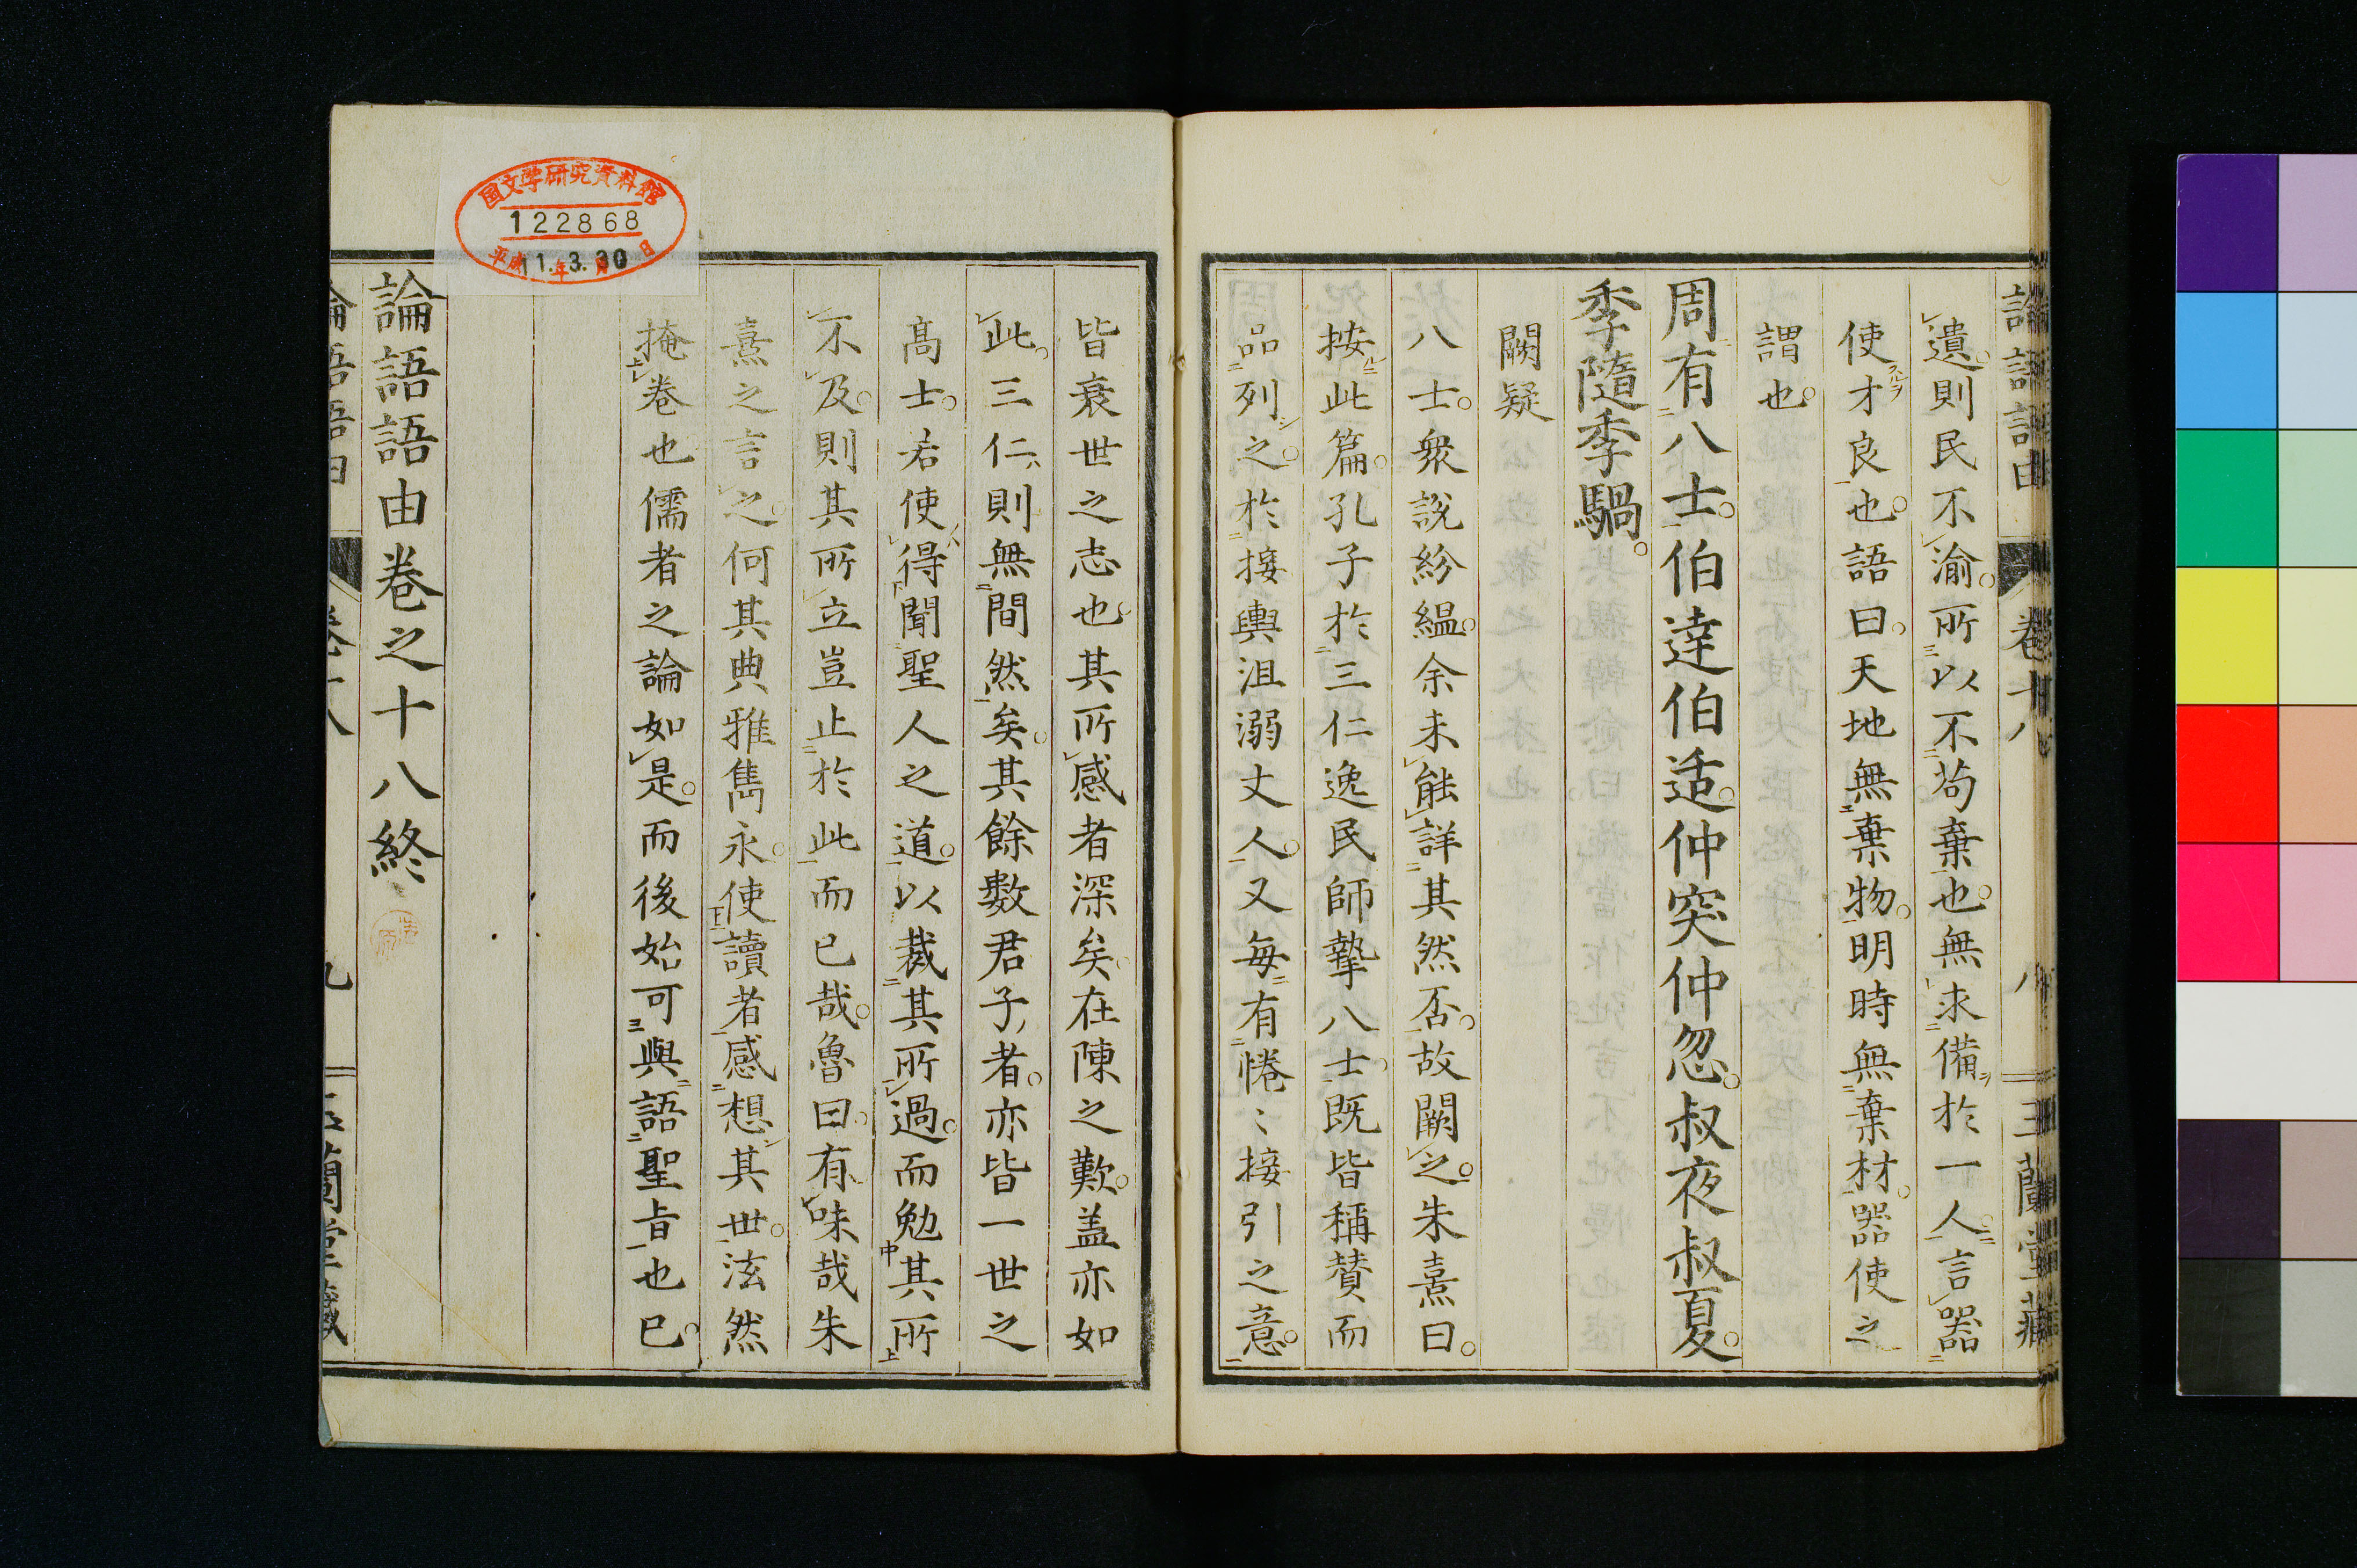 論語語由 卷十八 八 三蘭堂藏
遺則民不渝所以不苟棄也無求備於一人言器
使才良也語曰天地無棄物明時無棄材器使之
謂也
周有八士伯達伯适仲突仲忽叔夜叔夏
季隨季騧
闕疑
八士衆說紛緼余未能詳其然否故闕之朱熹曰
按此篇孔子於三仁逸民師摯八士既皆稱賛而
品列之於接輿沮溺丈人又每有惓〻接引之意
皆衰世之志也其所感者深矣在陳之歎盖亦如
此三仁則無間然矣其餘數君子者亦皆一世之
高士若使得聞聖人之道以裁其所過而勉其所
不及則其所立豈止於此而已哉魯曰有味哉朱
熹之言之何其典雅雋永使讀者感想其世泫然
掩卷也儒者之論如是而後始可與語聖旨也已
論語語由卷之十八終
論語語由 卷十八 九 三蘭堂藏
国文学研究資料館
122868
平成11年3月30日